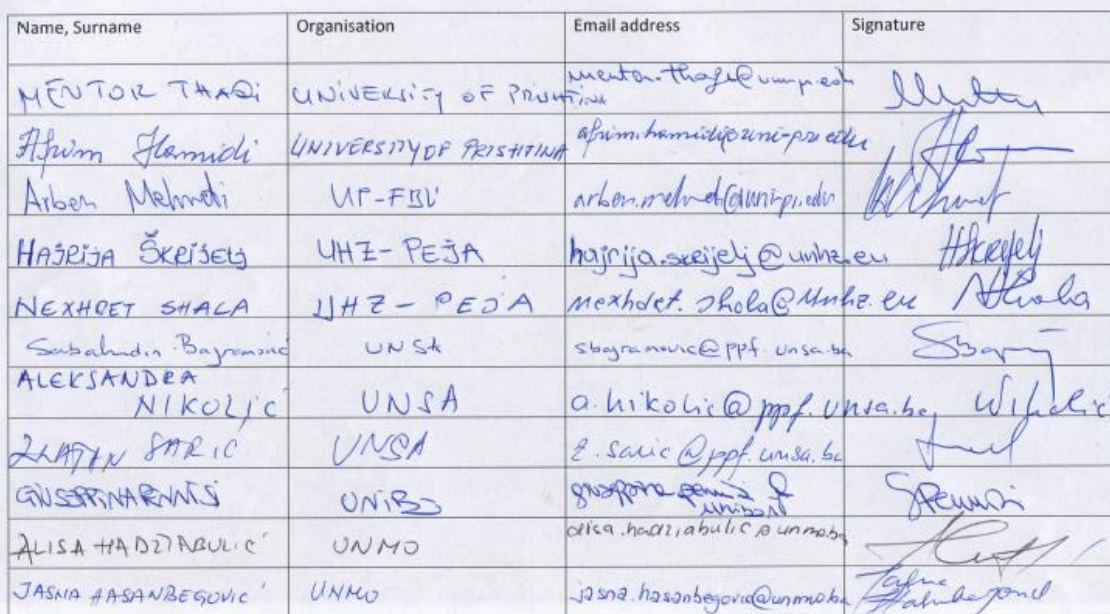 Name, Surname Organisation Email address Signature
MENTOR THAQI UNIVERSITY OF PRISHTINA
Afrim Hamidi UNIVERSITY OF PRISHTINA afrim.hamidi@uni-pr.edu
Arben Mehmeti UP-FBV arben.mehmeti@uni-pr.edu
HAJRIJA ŠKRIJELJ UHZ-PEJA hajrija.skrijelj@unhz.eu HSkrijelj
NEXHDET SHALA UHZ - PEJA nexhdet.shala@unhz.eu NShala
Sabahudin Bajramović UNSA sbajramovic@ppf.unsa.ba
ALEKSANDRA
NIKOLIĆ UNSA a.nikolic@ppf.unsa.ba
ZLATAN SARIĆ UNSA z.saric@ppf.unsa.ba
UNIBO
ALISA HADŽIABULIĆ UNMO alisa.hadziabulic@unmo.ba
JASNA HASANBEGOVIĆ UNMO jasna.hasanbegovic@unmo.ba